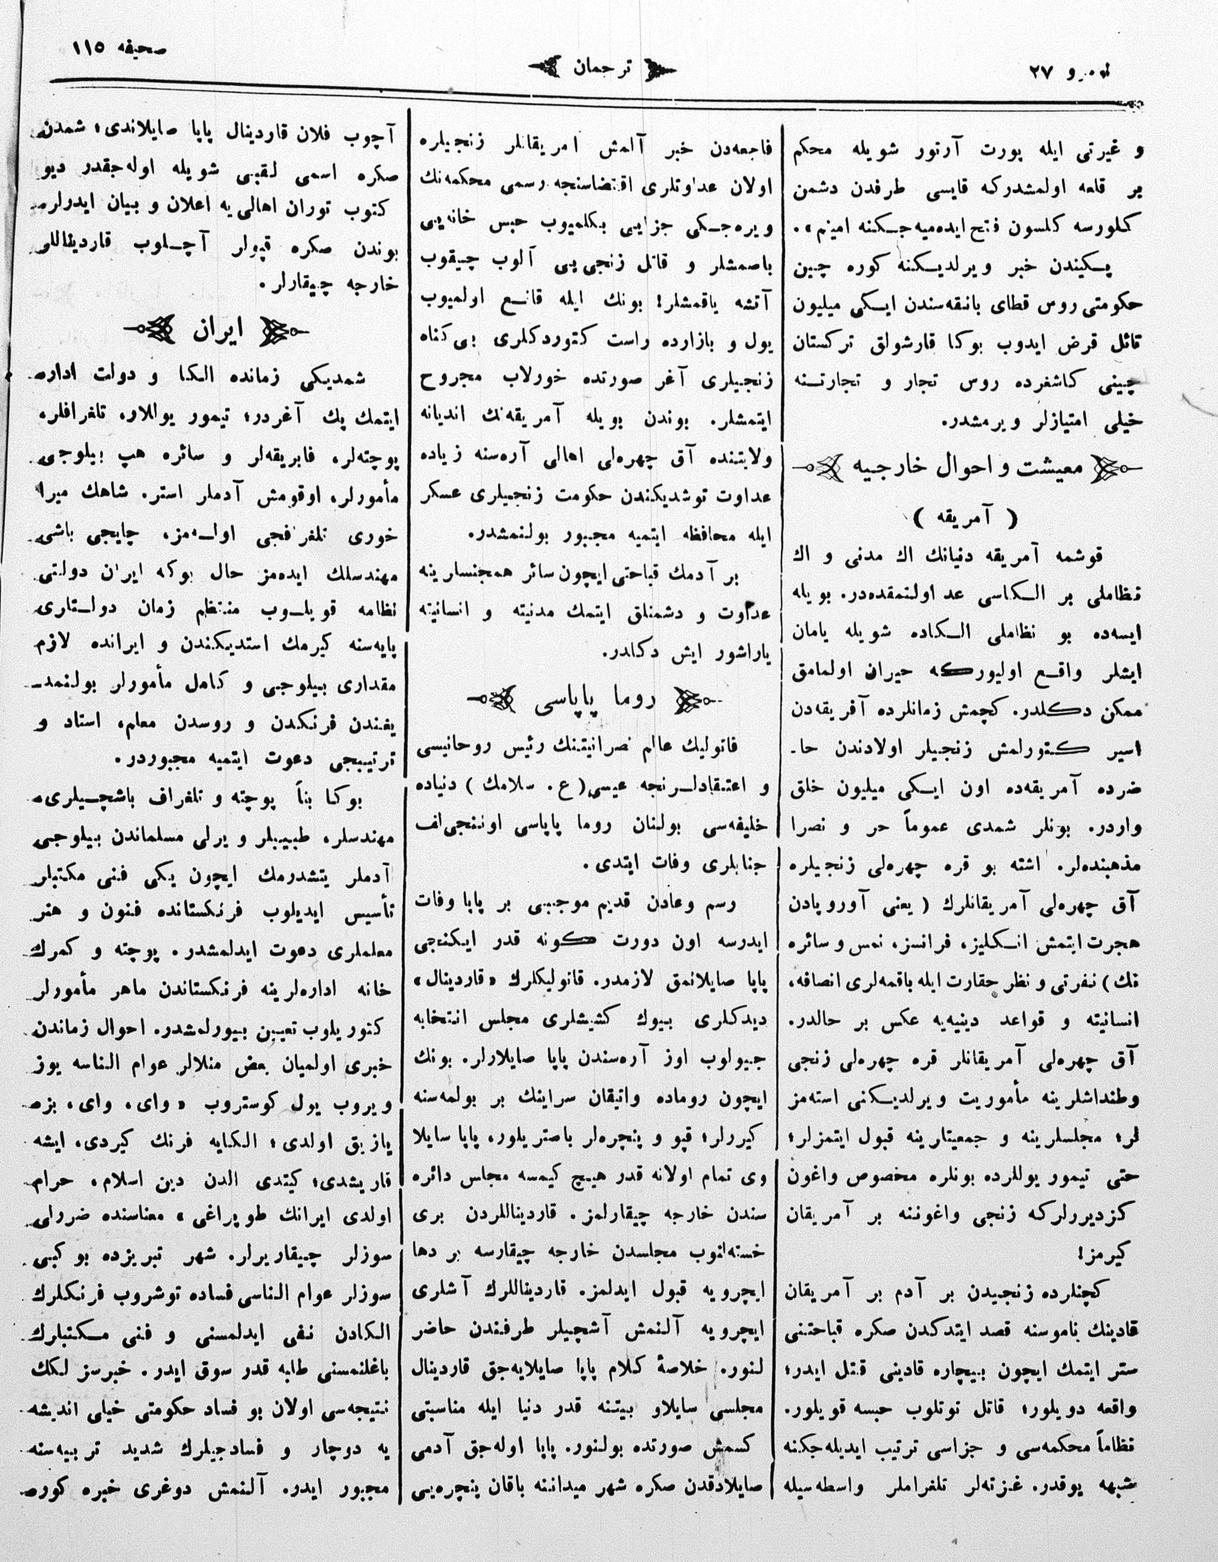 نومرو ٢٧
ترجمان
صحيفه ١١٥
و غيرتى ايله پورت آرتور شويله محكم
بر قلعه اولمشدركه قايسى طرفدن دشمن
كلورسه كلسون فتح ايده‌ميه‌جكنه امينم».
پكيندن خبر ويرلديكنه كوره چين
حكومتى روس قطاى بانقه‌سندن ايكى ميليون
تائل قرض ايدوب بوكا قارشولق تركستان
چينى كاشغرده روس تجار و تجارتنه
خيلى امتيازلر ويرمشدر.
معيشت و احوال خارجيه
( آمريقه )
قوشمه آمريقه دنيانك اك مدنى و اك
نظاملى بر الكاسى عد اولنمقده‌در. بويله
ايسه‌ده بو نظاملى الكاده شويله يامان
ايشلر واقع اوليوركه حيران اولمامق
ممكن دكلدر. كچمش زمانلرده آفريقه‌دن
اسير كتورلمش زنجيلر اولادندن حا-
ضرده آمريقه‌ده اون ايكى ميليون خلق
واردر. بونلر شمدى عموماً حر و نصرا
مذهبنده‌لر. اشته بو قره چهره‌لى زنجيلره
آق چهره‌لى آمريقانلرك ( يعنى آوروپادن
هجرت ايتمش انكليز، فرانسز، نمس و سائره
نك) نفرتى و نظر حقارت ايله باقمه‌لرى انصافه،
انسانيته و قواعد دينيه‌يه عكس بر حالدر.
آق چهره‌لى آمريقانلر قره چهره‌لى زنجى
وطنداشلرينه مأموريت ويرلديكنى استه‌مز
لر؛ مجلسلرينه و جمعيتلرينه قبول ايتمزلر؛
حتى تيمور يوللرده بونلره مخصوص واغون
كزديررلركه زنجى واغوننه بر آمريقان
كيرمز!
كچنلرده زنجيدن بر آدم بر آمريقان
قادينك ناموسنه قصد ايتدكدن صكره قباحتنى
ستر ايتمك ايچون بيچاره قادينى قتل ايدر؛
واقعه دويلور؛ قاتل توتلوب حبسه قويلور.
نظاماً محكمه‌سى و جزاسى ترتيب ايديله‌جكنه
شبهه يوقدر. غزته‌لر تلغراملر واسطه‌سيله
فاجعه‌دن خبر آلمش امريقانلر زنجيلره
اولان عداوتلرى اقتضاسنجه رسمى محكمه‌نك
ويره‌جكى جزايى بكلميوب حبس خانه‌يى
باصمشلر و قاتل زنجى‌يى آلوب چيقوب
آتشه ياقمشلر! بونك ايله قانع اولميوب
يول و بازارده راست كتوردكلرى بى‌كناه
زنجيلرى آغر صورتده خورلاب مجروح
ايتمشلر. بوندن بويله آمريقه‌نك اندیانه
ولايتنده آق چهره‌لى اهالى آره‌سنه زياده
عداوت توشديكندن حكومت زنجيلرى عسكر
ايله محافظه ايتميه مجبور بولنمشدر.
بر آدمك قباحتى ايچون سائر همجنسلرينه
عداوت و دشمنلق ايتمك مدنيته و انسانيته
ياراشور ايش دكلدر.
روما پاپاسى
قاتوليك عالم نصرانيتنك رئيس روحانيسى
و اعتقادلرنجه عيسى(ع. سلامك ) دنياده
خليفه‌سى بولنان روما پاپاسى اوننجى‌لف
جنابلرى وفات ايتدى.
رسم وعادن قديم موجبى بر پاپا وفات
ايدرسه اون دورت كونه قدر ايكنجى
پاپا صايلانمق لازمدر. قاتوليكلرك «قاردينال»
ديدكلرى بيوك كشيشلرى مجلس انتخابه
جيولوب اوز آره‌سندن پاپا صايلارلر. بونك
ايچون روماده واتيقان سراينك بر بولمه‌سنه
كيررلر؛ قپو و پنچره‌لر باصتريلور، پاپا سايلا
وى تمام اولانه قدر هيچ كيمسه مجلس دائره
سندن خارجه چيقارلمز. قاردیناللردن برى
خسته‌لنوب مجلسدن خارجه چيقارسه بر دها
ايچرويه قبول ايدلمز. قاردیناللرك آشلرى
ايچرويه آلنمش آشچيلر طرفندن حاضر
لنور. خلاصهٔ كلام پاپا صايلايه‌جق قاردينال
مجلسى سايلاو بيتنه قدر دنيا ايله مناسبتى
كسمش صورتده بولنور. پاپا اوله‌جق آدمى
صايلادقدن صكره شهر ميداننه باقان پنچره‌يى
آچوب فلان قاردينال پاپا صايلاندى؛ شمدن
صكره اسمى لقبى شويله اوله‌جقدر ديو
كتوب توران اهالى‌يه اعلان و بيان ايدرلر.
بوندن صكره قپولر آچلوب قاردیناللر
خارجه چيقارلر.
ايران
شمديكى زمانده الكا و دولت اداره
ايتمك پك آغردر؛ تيمور يوللار، تلغرافلر،
پوچته‌لر، فابريقه‌لر و سائره هپ بيلوجى
مأمورلر، اوقومش آدملر استر. شاهك ميرا
خورى تلغرافجى اوله‌مز، چايجى باشى
مهندسلك ايده‌مز حال بوكه ايران دولتى
نظامه قويلوب منتظم زمان دولتلرى
پايه‌سنه كيرمك استديكندن و ايرانده لازم
مقدارى بيلوجى و كامل مأمورلر بولنمد-
يغندن فرنكدن و روسدن معلم، استاد و
ترتيبجى دعوت ايتميه مجبوردر.
بوكا بناً پوچته و تلغراف باشچيلرى،
مهندسلر، طبيبلر و يرلى مسلماندن بيلوجى
آدملر يتشدرمك ايچون يكى فنى مكتبلر
تأسيس ايديلوب فرنكستانده فنون و هنر
معلملرى دعوت ايدلمشدر. پوچته و كمرك
خانه اداره‌لرينه فرنكستاندن ماهر مأمورلر
كتوريلوب تعيين بيورلمشدر. احوال زماندن
خبرى اولميان بعض منلالر عوام الناسه يوز
ويروب يول كوستروب «واى، واى، بزه
يازيق اولدى؛ الكايه فرنك كيردى، ايشه
قاريشدى؛ كيتدى الدن دين اسلام، حرام
اولدى ايرانك طوپراغى» معناسنده ضررلى
سوزلر چيقاريرلر. شهر تبريزده بو كبى
سوزلر عوام الناسى فساده توشروب فرنكلرك
الكادن نفى ايدلمسنى و فنى مكتبلرك
باغلنمسنى طلبه قدر سوق ايدر. خبرسز لكك
نتيجه‌سى اولان بو فساد حكومتى خيلى انديشه
يه دوچار و فسادجيلرك شديد تربيه‌سنه
مجبور ايدر. آلنمش دوغرى خبره كوره